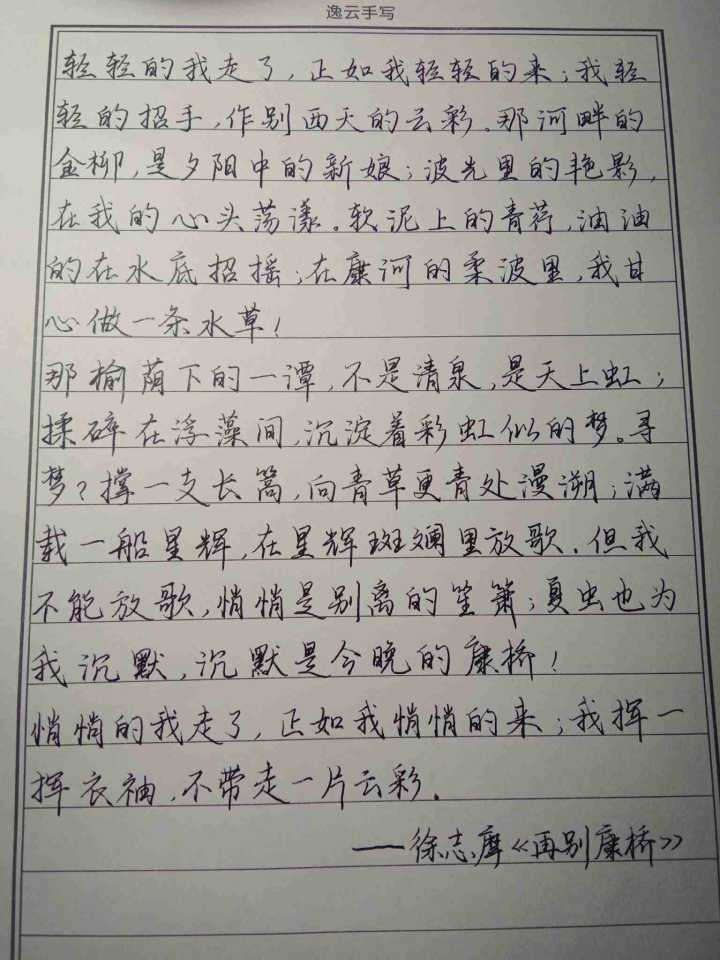 逸云手写
轻轻的我走了，正如我轻轻的来；我轻
轻的招手，作别西天的云彩。那河畔的
金柳，是夕阳中的新娘；波光里的艳影，
在我的心头荡漾。软泥上的青荇，油油
的在水底招摇；在康河的柔波里，我甘
心做一条水草！
那榆荫下的一潭，不是清泉，是天上虹；
揉碎在浮藻间，沉淀着彩虹似的梦。寻
梦？撑一支长篙，向青草更青处漫溯；满
载一船星辉，在星辉斑斓里放歌。但我
不能放歌，悄悄是别离的笙箫；夏虫也为
我沉默，沉默是今晚的康桥！
悄悄的我走了，正如我悄悄的来；我挥一
挥衣袖，不带走一片云彩。
——徐志摩《再别康桥》